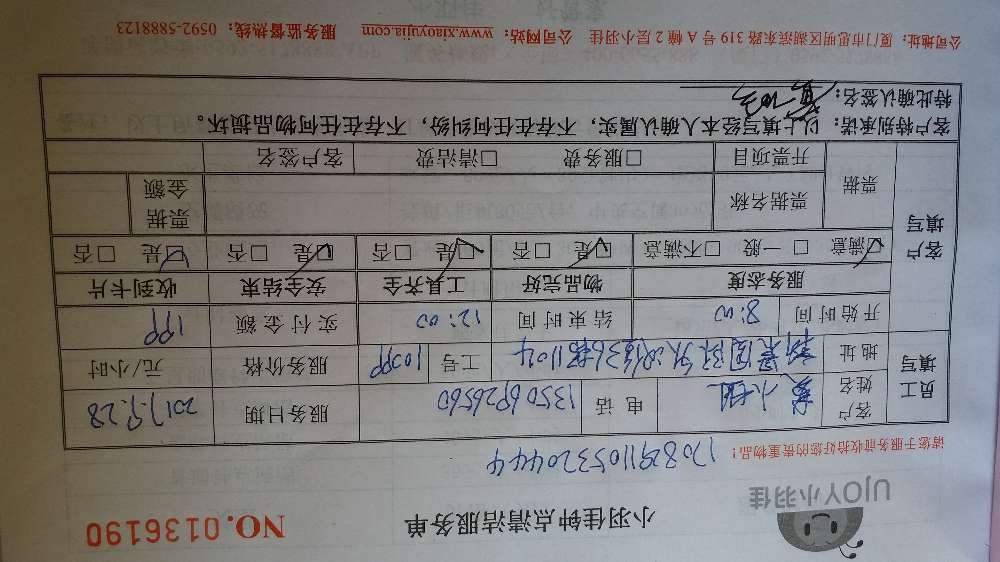 UJOY小羽佳
小羽佳钟点清洁服务单
NO.0136190
请您于服务前收拾好您的贵重物品!
1708291105320444
员工填写 客户姓名 小姐 电话 13506926560 服务日期 2017.9.28
地址 工号 10399 服务价格 元/小时
开始时间 8:00 结束时间 12:00 实付金额 199
客户填写 服务态度 物品完好 工具齐全 安全结束 收到卡片
☑满意 □一般 □不满意 ☑是 □否 ☑是 □否 ☑是 □否 ☑是 □否
票据 票据名称 票据金额
开票项目 □服务费 □清洁费 客户签名
客户特别承诺:以上填写经本人确认属实,不存在任何纠纷,不存在任何物品损坏。
特此确认签名:
公司地址:厦门市思明区湖滨东路319号A幢2层小羽佳 公司网站:www.xiaoyujia.com 服务监督热线:0592-5888123